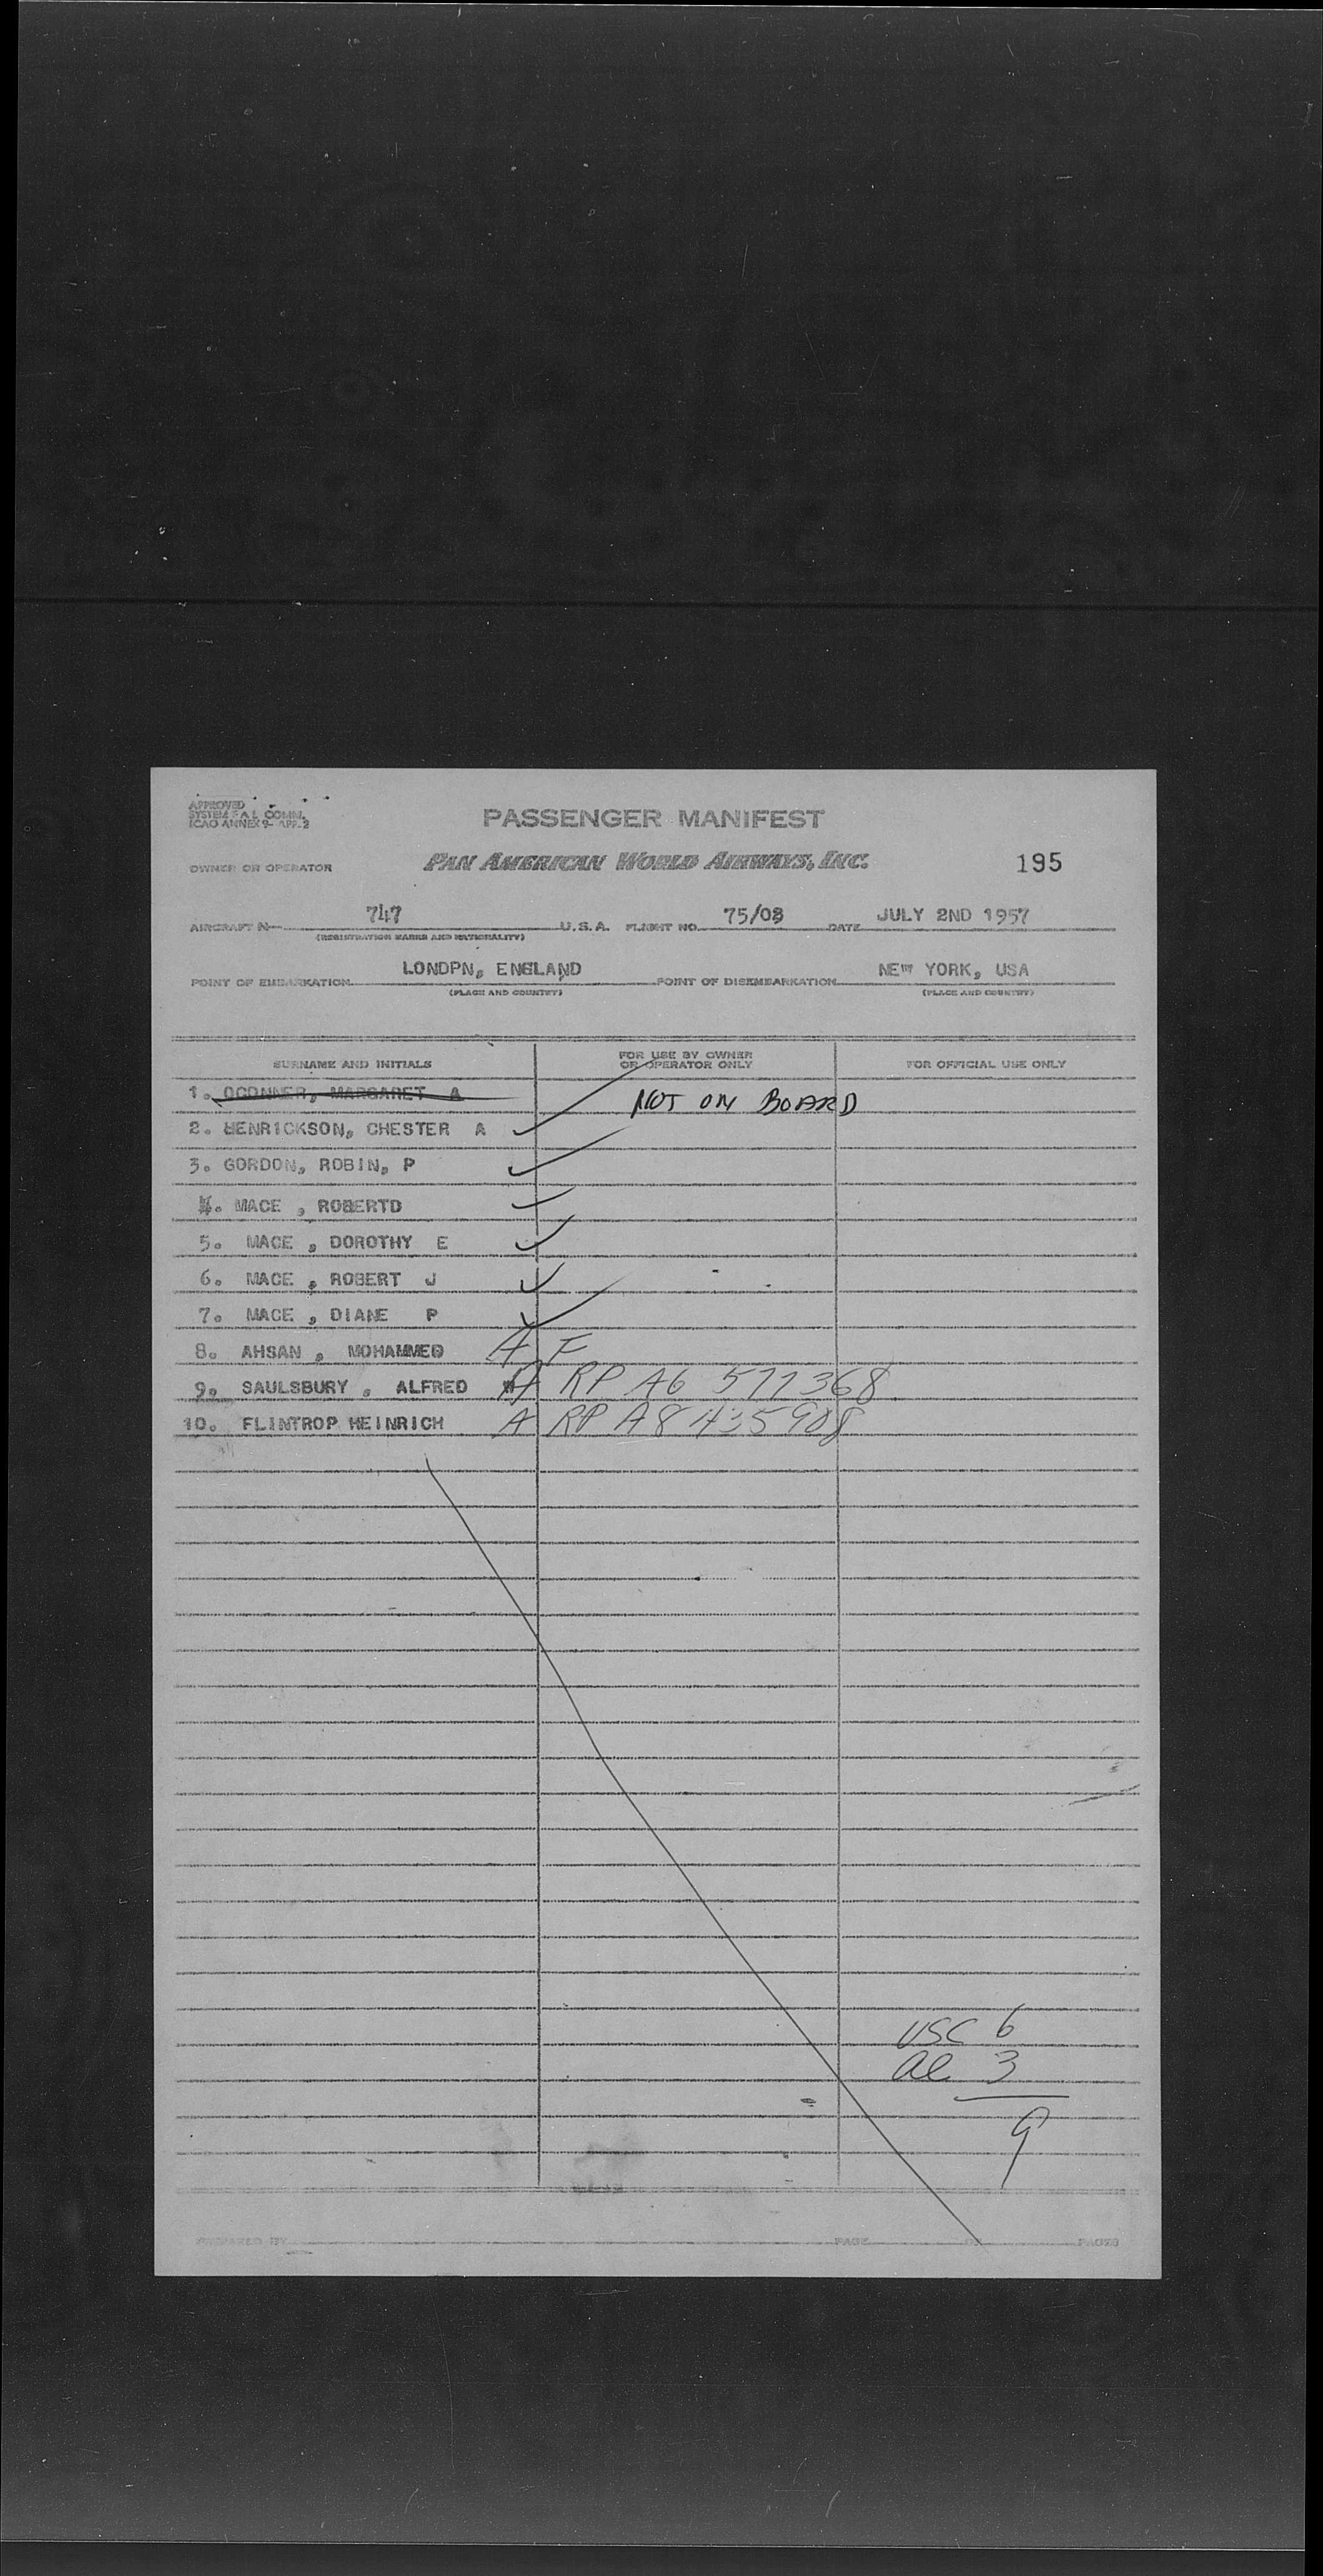 APPROVED
SYSTEM F A L COMM.
ICAO ANNEX 9- APP. 2
PASSENGER MANIFEST
OWNER OR OPERATOR PAN AMERICAN WORLD AIRWAYS, INC. 195
AIRCRAFT N 747 U.S.A. FLIGHT NO. 75/08 DATE JULY 2ND 1957
(REGISTRATION MARKS AND NATIONALITY)
POINT OF EMBARKATION LONDPN, ENGLAND POINT OF DISEMBARKATION NEW YORK, USA
(PLACE AND COUNTRY) (PLACE AND COUNTRY)
SURNAME AND INITIALS FOR USE BY OWNER OR OPERATOR ONLY FOR OFFICIAL USE ONLY
1. OCONNER, MARGARET A NOT ON BOARD
2. HENRICKSON, CHESTER A
3. GORDON, ROBIN, P
4. MACE , ROBERTD
5. MACE , DOROTHY E
6. MACE , ROBERT J
7. MACE , DIANE P
8. AHSAN , MOHAMMED A F
9. SAULSBURY , ALFRED W A RP A6 577368
10. FLINTROP HEINRICH A RP A8 435908
USC 6
al 3
9
PREPARED BY PAGE OF PAGES